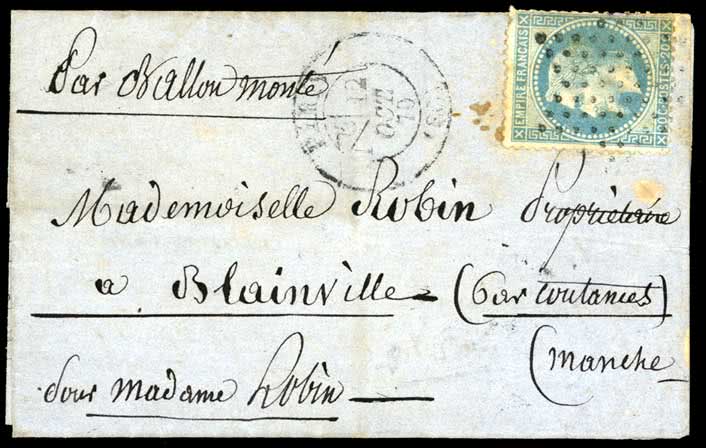 Par Ballon monté
EMPIRE FRANÇAIS
Mademoiselle Robin Propriétaire
a Blainville (par Coutances)
(Manche
pour Madame Robin